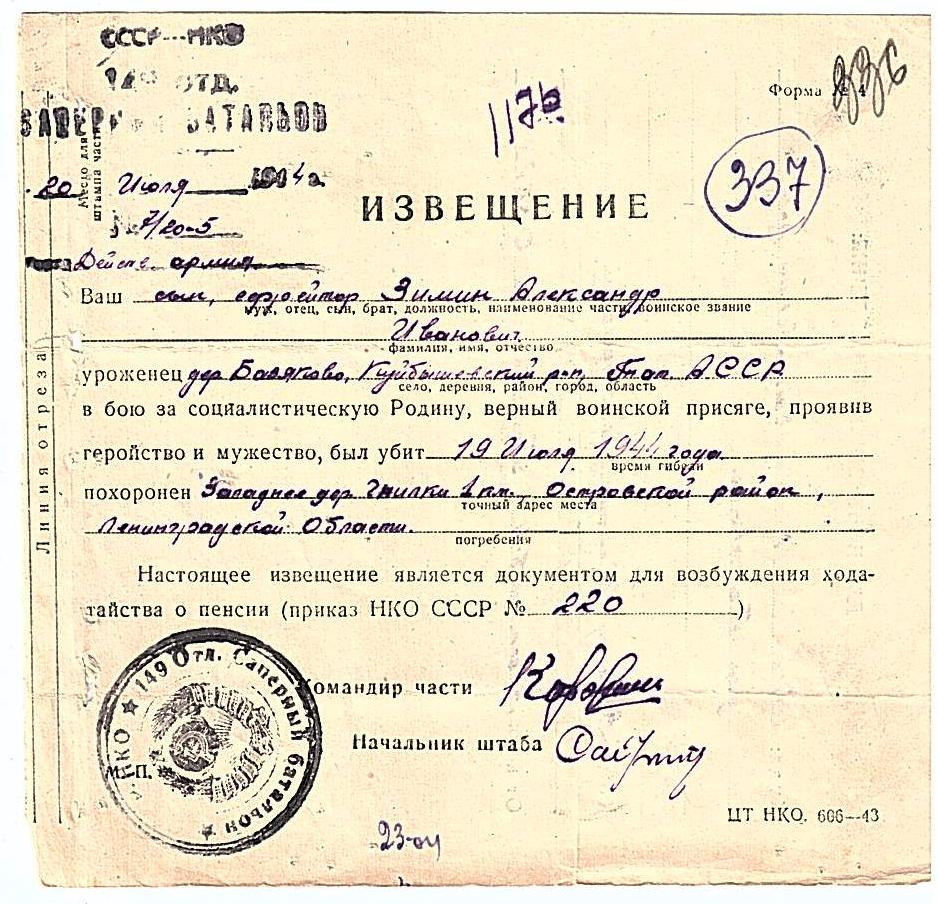 СССР—НКО
149 ОТД.
САПЕРНЫЙ БАТАЛЬОН
Место для штампа части
20 Июля 1944 г.
7/20-5
Действ. армия
1176
Форма № 4
336
337
ИЗВЕЩЕНИЕ
Ваш сын, ефрейтор Зимин Александр
муж, отец, сын, брат, должность, наименование части, воинское звание
Иванович
фамилия, имя, отчество
уроженец дер Базяково, Куйбышевский р-н, Тат АССР
село, деревня, район, город, область
в бою за социалистическую Родину, верный воинской присяге, проявив
геройство и мужество, был убит 19 Июля 1944 года
время гибели
похоронен Западнее дер Гнилки 1 км., Островской район,
точный адрес места
Ленинградской Области.
погребения
Настоящее извещение является документом для возбуждения хода-
тайства о пенсии (приказ НКО СССР № 220 )
Линия отреза
Командир части
Начальник штаба
М.П.
НКО ★ 149 Отд. Саперный батальон ★
ЦТ НКО. 666—43